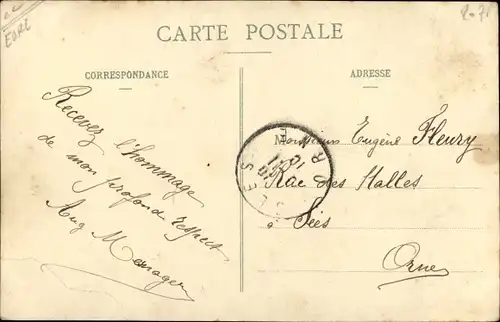 EURE
CARTE POSTALE
CORRESPONDANCE
ADRESSE
Recevez l'hommage
de mon profond respect
Aug Menager
Monsieur Eugène Fleury
Rue des Halles
à Sées
Orne